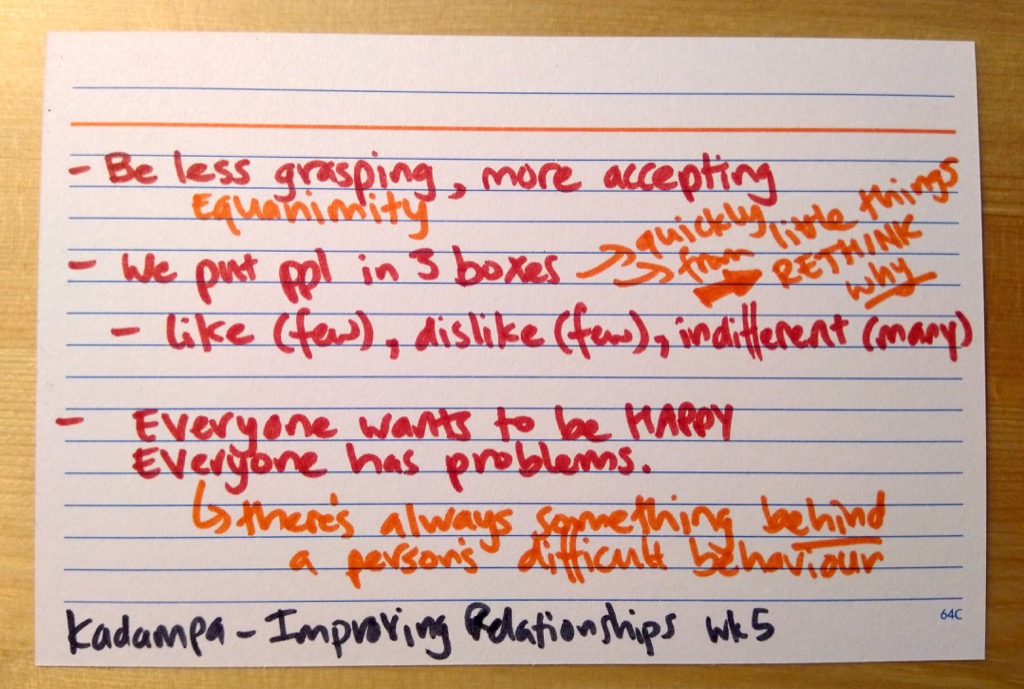 - Be less grasping, more accepting
Equanimity
- We put ppl in 3 boxes → quickly
→ from little things
→ RETHINK
why
- like (few), dislike (few), indifferent (many)
- Everyone wants to be HAPPY
Everyone has problems.
↳ there's always something behind
a person's difficult behaviour
64C
Kadampa - Improving Relationships wk5